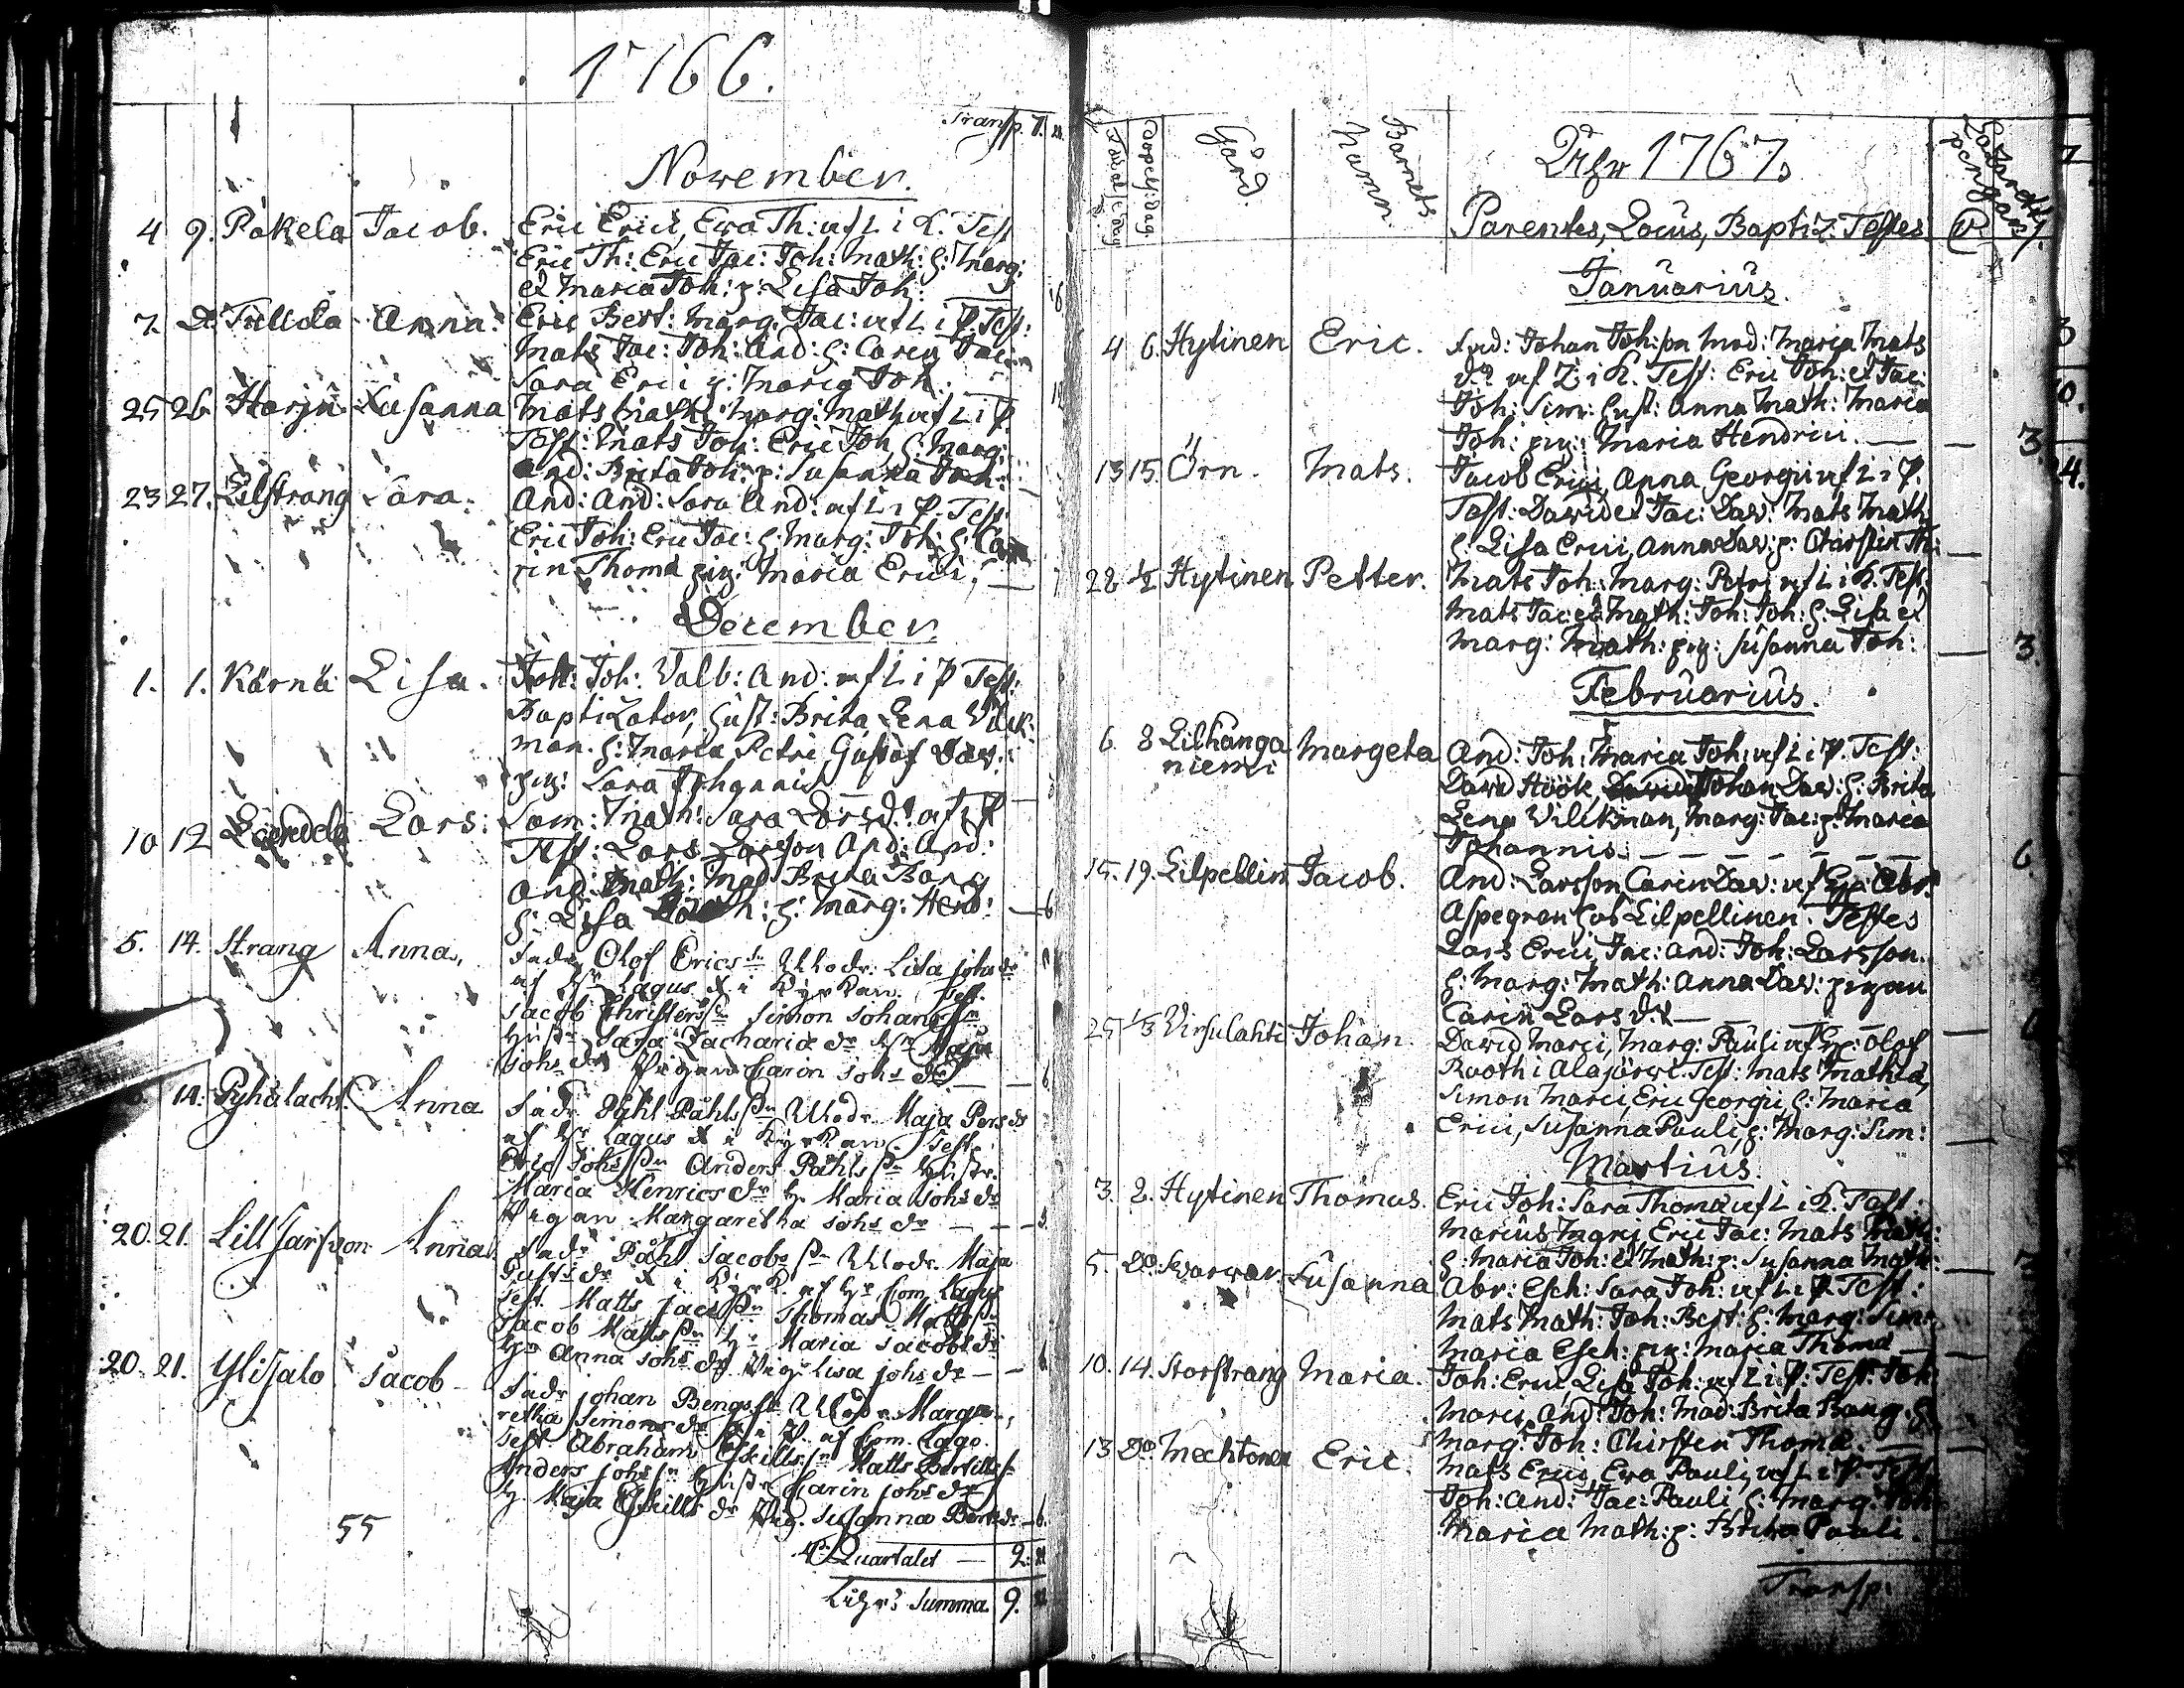 1766.
Transp. 7.
November.
4 9. Päkela Jacob. Eric Erici, Ewa Th: af L i K. Test
Eric Th: Eric Jac: Joh: Math: h: Marg:
et Maria Joh: p: Lisa Joh:
7. Do Tulida Anna. Eric Bert: Marg. Jac: af L i P. Test:
Mats Jac: Joh: And: h: Carin Jac:
Sara Eri i p: Maria Joh:
25 26. Harju Susanna Mats Math: Marg: Math af L i P.
Test: Mats Joh: Eric Joh h: Marg:
And: Brita Joh: p: Susanna Joh:
23 27. Lilstrang Sara. And: And: Sara And: af L i P. Test
Eric Joh: Eric Jac: h: Marg: Joh: h: Ca
rin Thomæ pig: Maria Erici.
December.
1. 1. Kärnä Lisa. Joh: Joh: Valb: And: af L i P Test:
Baptizator, hust: Brita Lena Vilck:
man. h: Maria Petri Gustaf Dav:
pig: Sara Johannis
10 12 Lars: Sam: Math: Sara Larsd:r af L i P
Test: Lars Larsson And: And:
And: Math: Mad Brita Bang
h: Lisa h: Marg: Hend: 6
5. 14. Strang Anna, Fadr Olof Ericssn Modr: Lisa Johsdr
af Hr Lagus X i Kyrkan. Test.
Jacob Christerssn Simon Johanssn
Hustr Sara Zachariædr Hr Maja
Johsdr Pigan Carin Johsdr 6
14. Pyhälacht. Anna Fadr Påhl Påhlssn Modr Maja Persdr
af Hr Lagus X i Kyrkan Test.
Eric Johssn Anders Påhlssn Hustr.
Maria Henricsdr h. Maria Johsdr
Pigan Margaretha Johsdr 3.
20. 21. Lill Jarfvon Anna Fadr Påhl Jacobssn Modr. Maja
Gustsdr X i Kyrk. af Hr Com. Lagus
Test. Matts Jacssn Thomas Mattssn
Jacob Mattssn Hr Maria Jacobsdr
Hr Anna Johsdr Pig. Lisa Johsdr 6.
20. 21. Ylisalo Jacob Fadr Johan Bengssn Modr. Marga
retha Simonsdr X i K. af Com. Laggo.
Test. Abraham Eskillssn Matts Bertillss
Anders Johssn Hustr Carin Johsdr
H. Maja Eskillsdr Pig. Susanna Bertsdr 6.
55
4 Quartalet 2:
Lijh: Summa 9.
Födelse Dag Döpels: Dag. Gård. Barnets Namn Åhr 1767.
Parentes, Locus, Baptiz. Testes
Januarius.
4 6. Hytinen Eric. Fad: Johan Joh:son Mod: Maria Mats
d:r af L i K. Test: Eric Joh: et Jac:
Joh: Sim: hust: Anna Math: Maria
Joh: pig: Maria Hendrici. 3.
13 15. Örn. Mats. Jacob Erici, Anna Georgii af L i P.
Test: David et Jac: Dav: Mats Math
h: Lisa Erici, Anna Dav: p: Charstin Th:
28 1/2 Hytinen Petter. Mats Joh: Marg: Petri af L i K. Test.
Mats Jac: et Math: Joh: Joh: h: Lisa et
Marg: Math: pig: Susanna Joh: 3.
Februarius.
6. 8 Lilkånga
niemi Margeta And: Joh: Maria Joh: af L i P. Test:
David Höök, Johan Dav: h: Brita
Lena Vilckman, Marg: Jac: p: Maria
Johannis. 6.
15. 19. Lilpellin Jacob. And: Larsson Carin Dav: af Abr:
Aspegren hos Lilpellinen. Testes
Lars Erici, Jac: And: Joh: Larsson.
h: Marg: Math: Anna Dav: pigan
Carin Lars d:r
25 1/3 Virsulahti Johan. David Marci, Marg: Pauli af Olof
Rooth i Alajärwi. Test: Mats Mathiæ,
Simon Marci, Eric Georgii, h: Maria
Erici, Susanna Pauli, h: Marg: Sim:
Martius.
3. 2. Hytinen Thomas. Eric Joh: Sara Thomæ af L i K. Test:
Marcus Marci, Eric Jac: Mats Math:
h: Maria Joh: et Math: p: Susanna Math:
5. Do Svarvar Susanna Abr: Esch: Sara Joh: af L i P. Test:
Mats Math: Joh: Bert: h: Marg: Sim:
Maria Esch: pig: Maria Thomæ
10. 14. Storstrang Maria. Joh: Erici Lisa Joh: af L i P: Test: Joh
Marci, And: Joh: Mad: Brita Bang h:
Marg: Joh: Chirstin Thomæ.
13 Do Mechtonen Eric. Mats Erici, Ewa Pauli, af L i P. Test
Joh: And: Jac: Pauli, h: Marg: Joh:
Maria Math: p: Brita Pauli.
Transp: